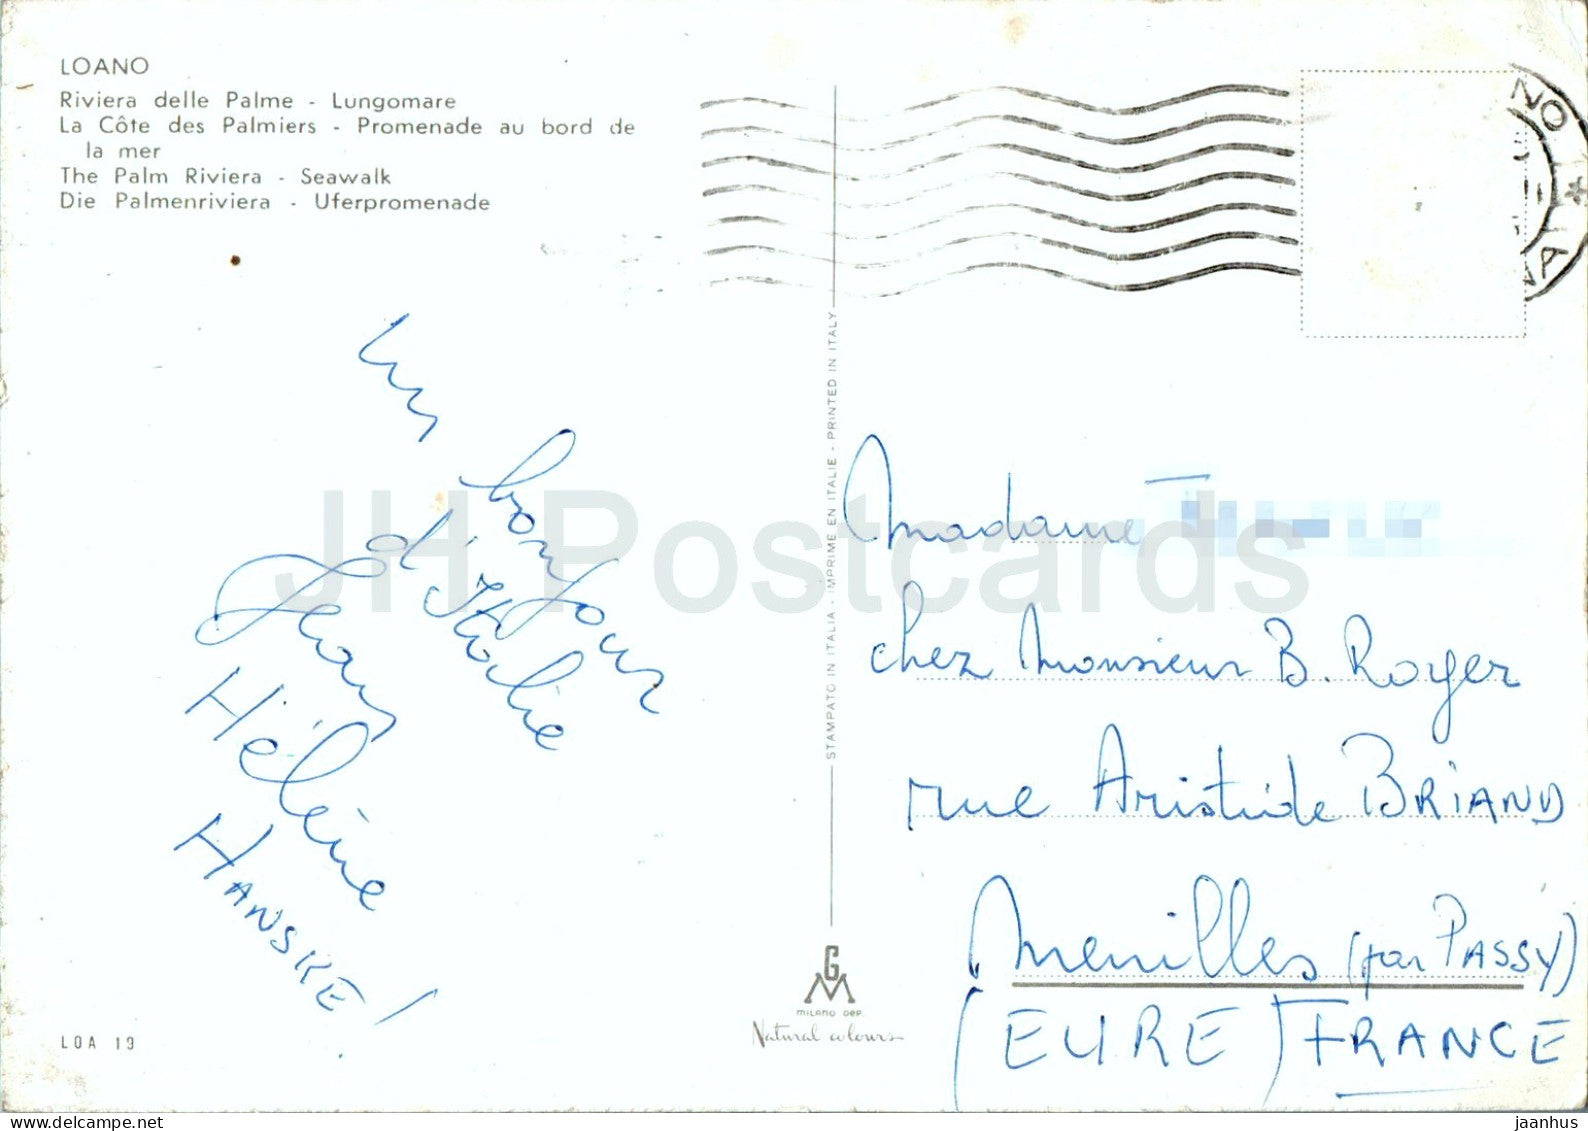 LOANO
Riviera delle Palme - Lungomare
La Côte des Palmiers - Promenade au bord de
la mer
The Palm Riviera - Seawalk
Die Palmenriviera - Uferpromenade
un bonjour
d'Italie
Jean
Hélène
HANSKE!
STAMPATO IN ITALIA - IMPRIME EN ITALIE - PRINTED IN ITALY
Madame
chez Monsieur B. Royer
rue Aristide BRIAND
Menilles (par PASSY)
(EURE) FRANCE
GM
MILANO DEP.
Natural colours
LOA 19
JH Postcards
jaanhus